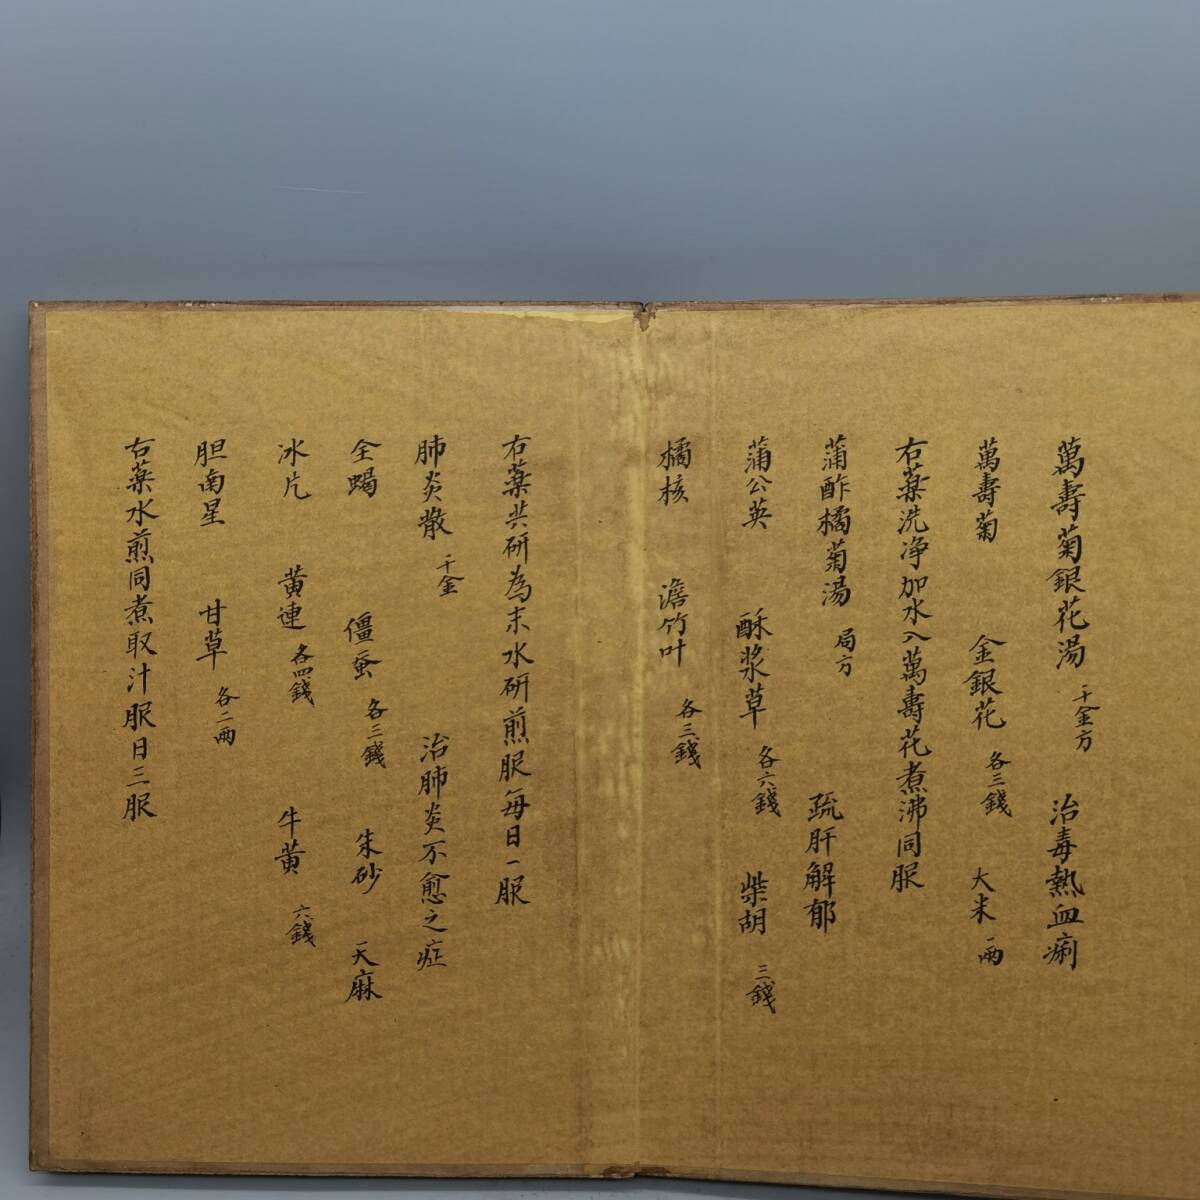 萬壽菊銀花湯 千金方 治毒熱血痢
萬壽菊 金銀花 各三錢 大米 一兩
右藥洗净加水入萬壽花煮沸同服
蒲酢橘菊湯 局方 疏肝解郁
蒲公英 酥浆草 各六錢 柴胡 三錢
橘核 澹竹叶 各三錢
右藥共研為末水研煎服每日一服
肺炎散 千金 治肺炎不愈之症
全蝎 僵蚕 各三錢 朱砂 天麻
冰片 黄連 各四錢 牛黄 六錢
胆南星 甘草 各二兩
右藥水煎同煮取汁服日三服